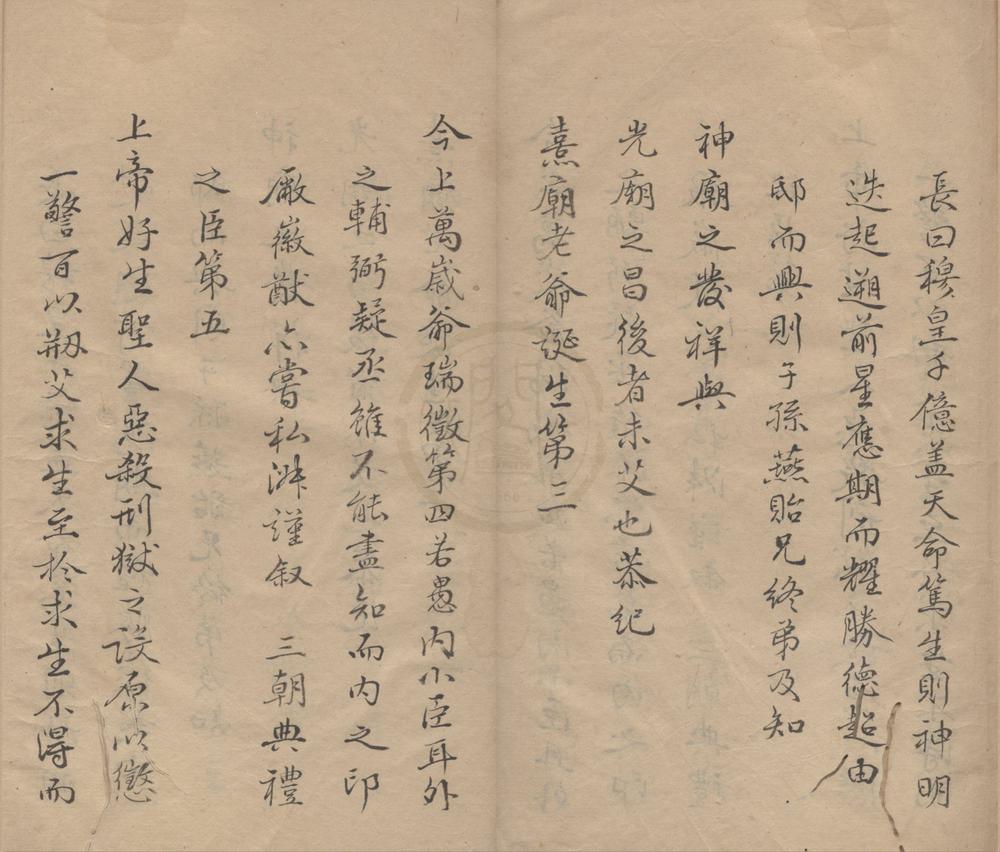 長曰穆皇千億盖天命篤生則神明
迭起遡前星應期而耀勝德起由
邸而興則子孫燕貽兄終弟及知
神廟之發祥與
光廟之昌後者未艾也恭紀
熹廟老爺誕生第三
今上萬歲爺瑞徵第四若愚内小臣耳外
之輔弼疑丞雖不能盡知而内之印
廠徽猷亦嘗私淑謹叙 三朝典禮
之臣第五
上帝好生聖人惡殺刑獄之設原以懲
一警百以刱艾求生至扵求生不得而